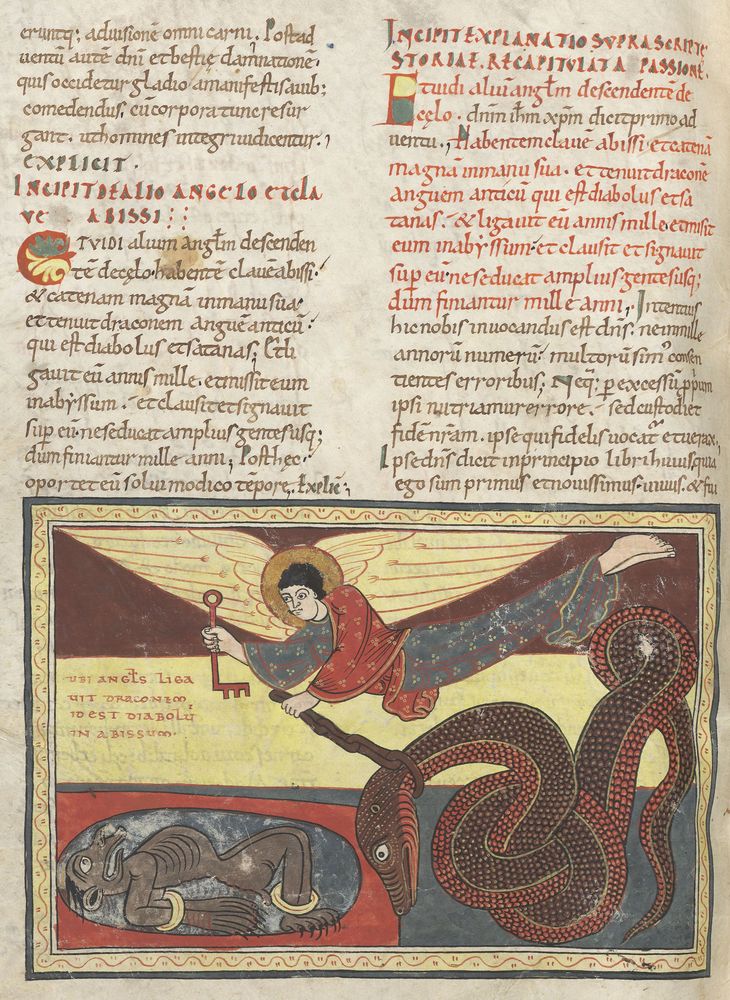 erunt q; aduisionē omni carni. Postad
uentū autē dnī et bestię damnationē
quis occidetur gladio a manifestis auib;
comedendus. cū corpora tunc resur
gant. ut homines integri iudicentur.
EXPLICIT.
INCIPIT DE ALIO ANGELO ET CLA
VE ABISSI
ET VIDI alium anglm descenden
tē decęlo. habentē clauē abissi.
& catenam magnā inmanu sua.
et tenuit draconem anguē anticū.
qui est diabolus et satanas; Et li
gauit eū annis mille. et missit eum
in abyssum. et clausit et signauit
sup eū. ne seducat amplius gentes usq;
dum finiantur mille anni; Post hęc
oportet eū solui modico tepore. Explic;
INCIPIT EXPLANATIO SUPRA SCRIPTE
STORIAE. RECAPITULATA PASSIONE.
Et uidi aliū anglm descendente de
cęlo. dnm ihm xpm dicit primo ad
uentu; Habentem clauē abissi. et catenā
magnā inmanu sua. et tenuit draconē
anguem anticū qui est diabolus et sa
tanas. & ligauit eū annis mille. et misit
eum in abyssum. et clausit et signauit
sup eū. ne seducat amplius gentes usq;
dum finiantur mille anni; Intentius
hic nobis inuocandus est dns. ne in mille
annorū numerū. multorū simˀ consen
tientes erroribus; Neq; p excessū pprium
ipsi nutriamur errore. sed custodiet
fidē nrām. ipse qui fidelis uocat et uerax.
Ipse dns dicit in principio libri huius quia
ego sum primus et nouissimus. uiuus. & fui
UBI ANGLS LIGA
UIT DRACONEM
ID EST DIABOLŪ
IN ABISSUM.